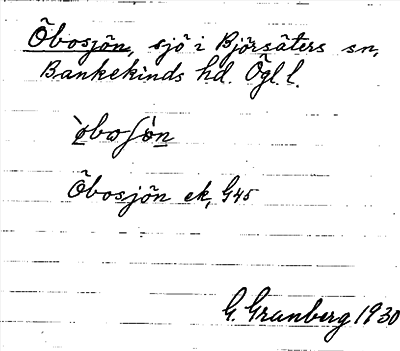 Öbosjön, sjö i Björsäters sn,
Bankekinds hd. Ögl. l.
òboʃòn
Öbosjön ek, G45
G. Granberg 1930